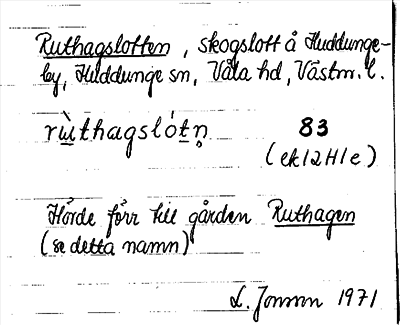 Ruthagslotten, skogslott å Huddunge-
by, Huddunge sn, Våla hd, Västm. l.
rùthagslótn̥ 83
(ek 12H1e)
Hörde förr till gården Ruthagen
(se detta namn)
L. Jonson 1971